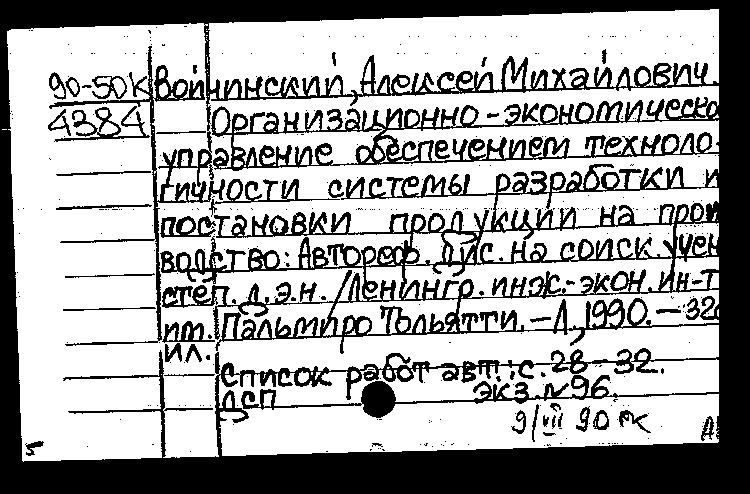 90-50К Войчинский, Алексей Михайлович.
4384 Организационно-экономическо
управление обеспечением техноло-
гичности системы разработки и
постановки продукции на прои
водство: Автореф. дис. на соиск. учен
степ. д.э.н. /Ленингр. инж.-экон. ин-т
им. Пальмиро Тольятти. - Л., 1990. - 32с
ил.
Список работ авт.: с. 28-32.
ДСП экз. №96.
9/VII 90